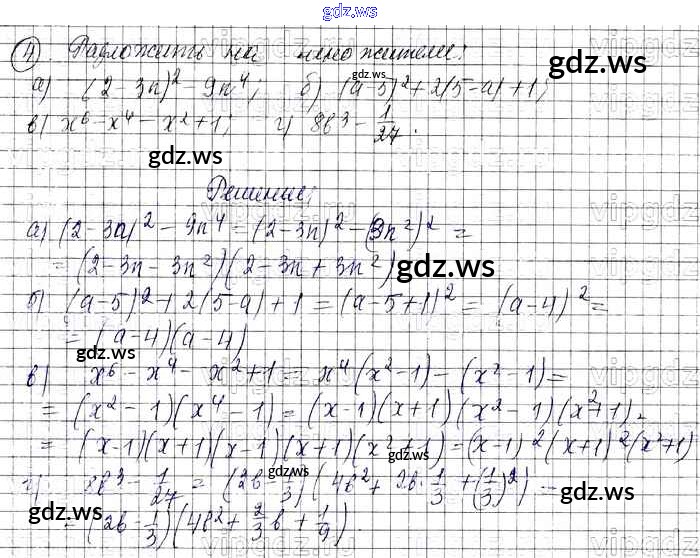 gdz.ws
④. Разложить на множители:
а) (2-3n)² - 9n⁴; б) (a-5)² + 2(5-a) + 1;
в) x⁶ - x⁴ - x² + 1; г) 8b³ - 1/27.
Решение:
а) (2-3n)² - 9n⁴ = (2-3n)² - (3n²)² =
= (2-3n-3n²)(2-3n+3n²)
б) (a-5)² + 2(5-a) + 1 = (a-5+1)² = (a-4)² =
= (a-4)(a-4)
в) x⁶ - x⁴ - x² + 1 = x⁴(x²-1) - (x²-1) =
= (x²-1)(x⁴-1) = (x-1)(x+1)(x²-1)(x²+1) =
= (x-1)(x+1)(x-1)(x+1)(x²+1) = (x-1)²(x+1)²(x²+1)
г) 8b³ - 1/27 = (2b - 1/3)(4b² + 2b·1/3 + (1/3)²) =
= (2b - 1/3)(4b² + 2/3 b + 1/9).